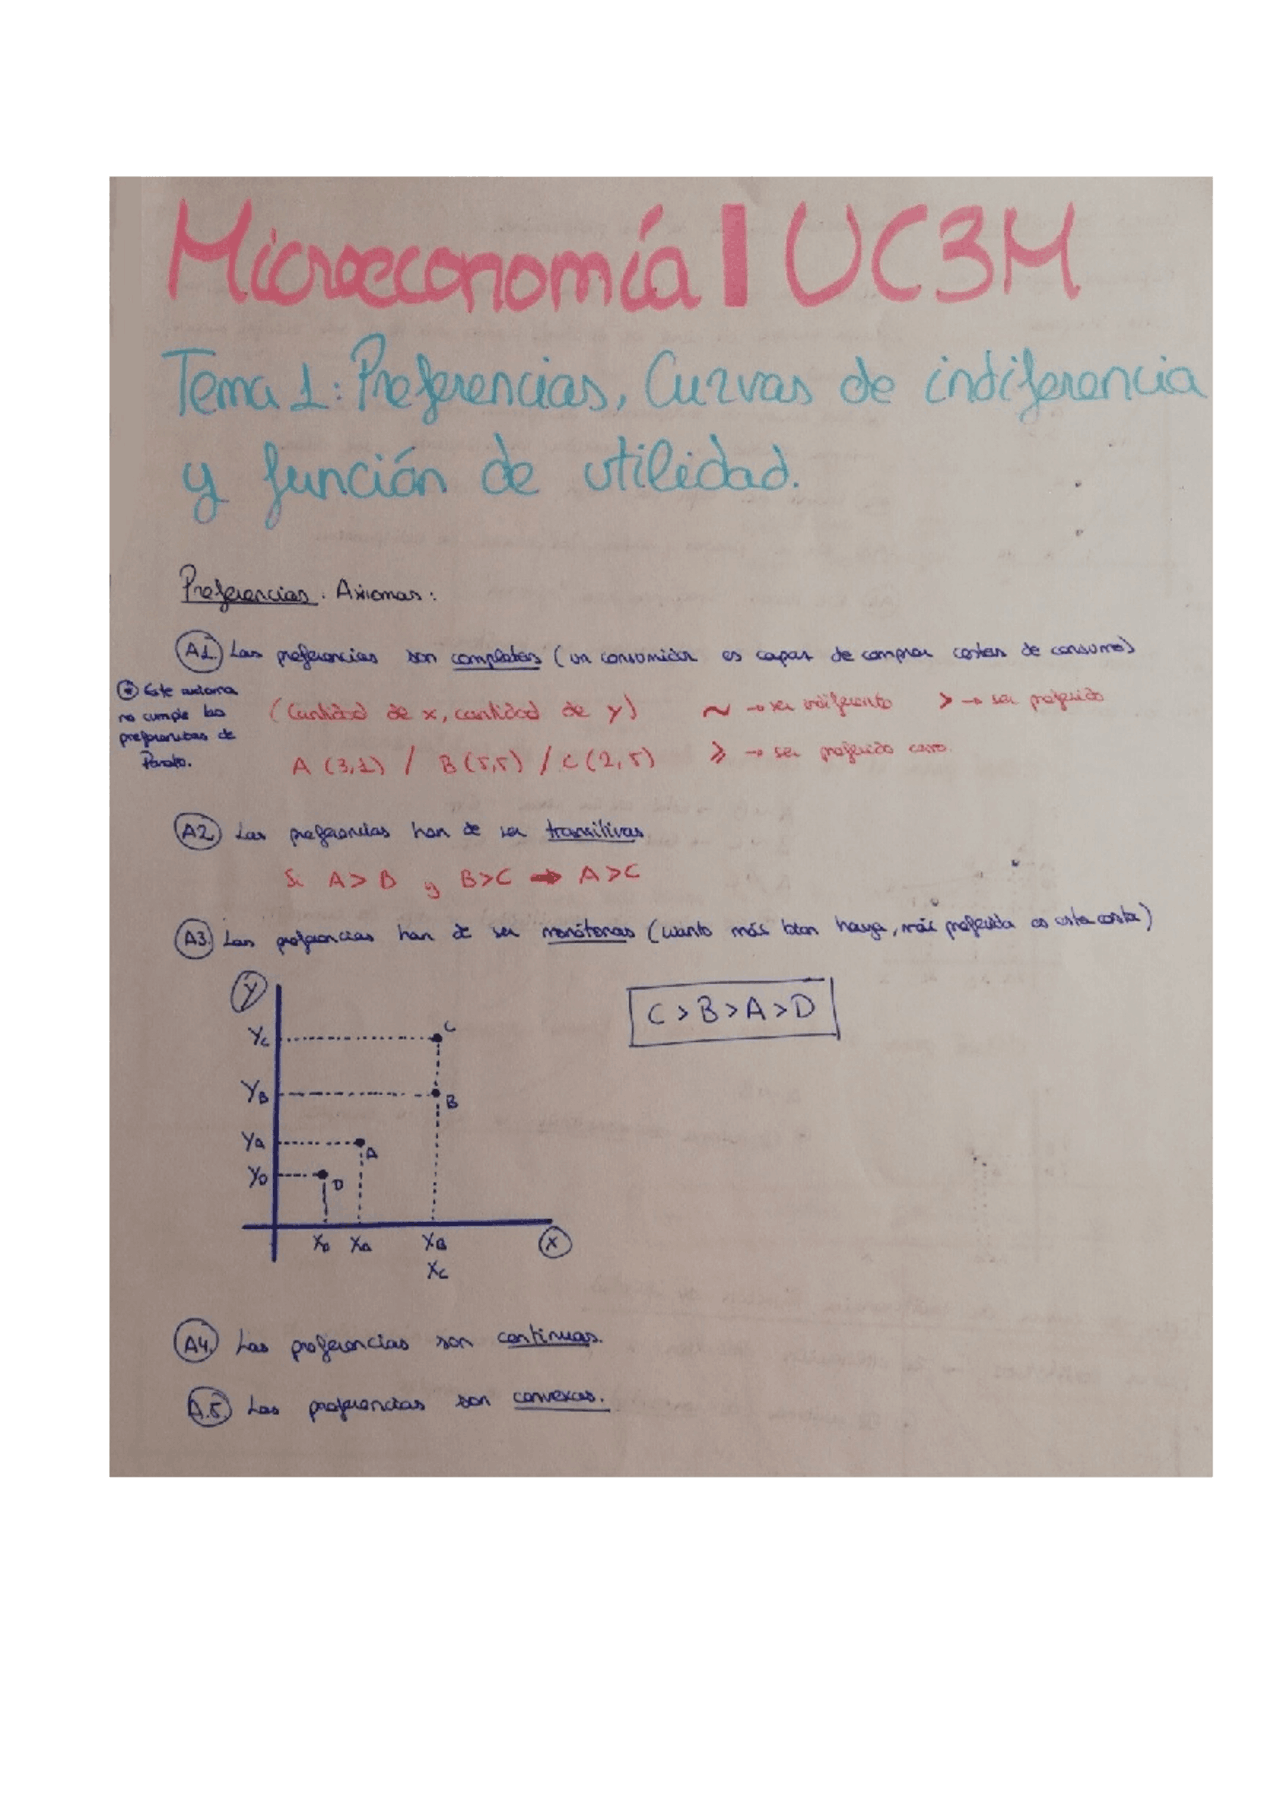 Microeconomía | UC3M
Tema 1: Preferencias, Curvas de indiferencia
y función de utilidad.
Preferencias. Axiomas:
A1. Las preferencias son completas (un consumidor es capaz de comprar cestas de consumo)
* Este axioma
no cumple las
preferencias de
Pareto.
(Cantidad de x, cantidad de y) ~ → ser indiferente > → ser preferido
A (3,1) / B (5,5) / C (2,5) ≽ → ser preferido como
A2. Las preferencias han de ser transitivas
Si A > B y B > C ⇒ A > C
A3. Las preferencias han de ser monótonas (cuanto más bien haya, más preferida es esta cesta)
y
C > B > A > D
Yc C
YB B
YA A
YD D
XD XA XB x
Xc
A4. Las preferencias son continuas.
A.5. Las preferencias son convexas.